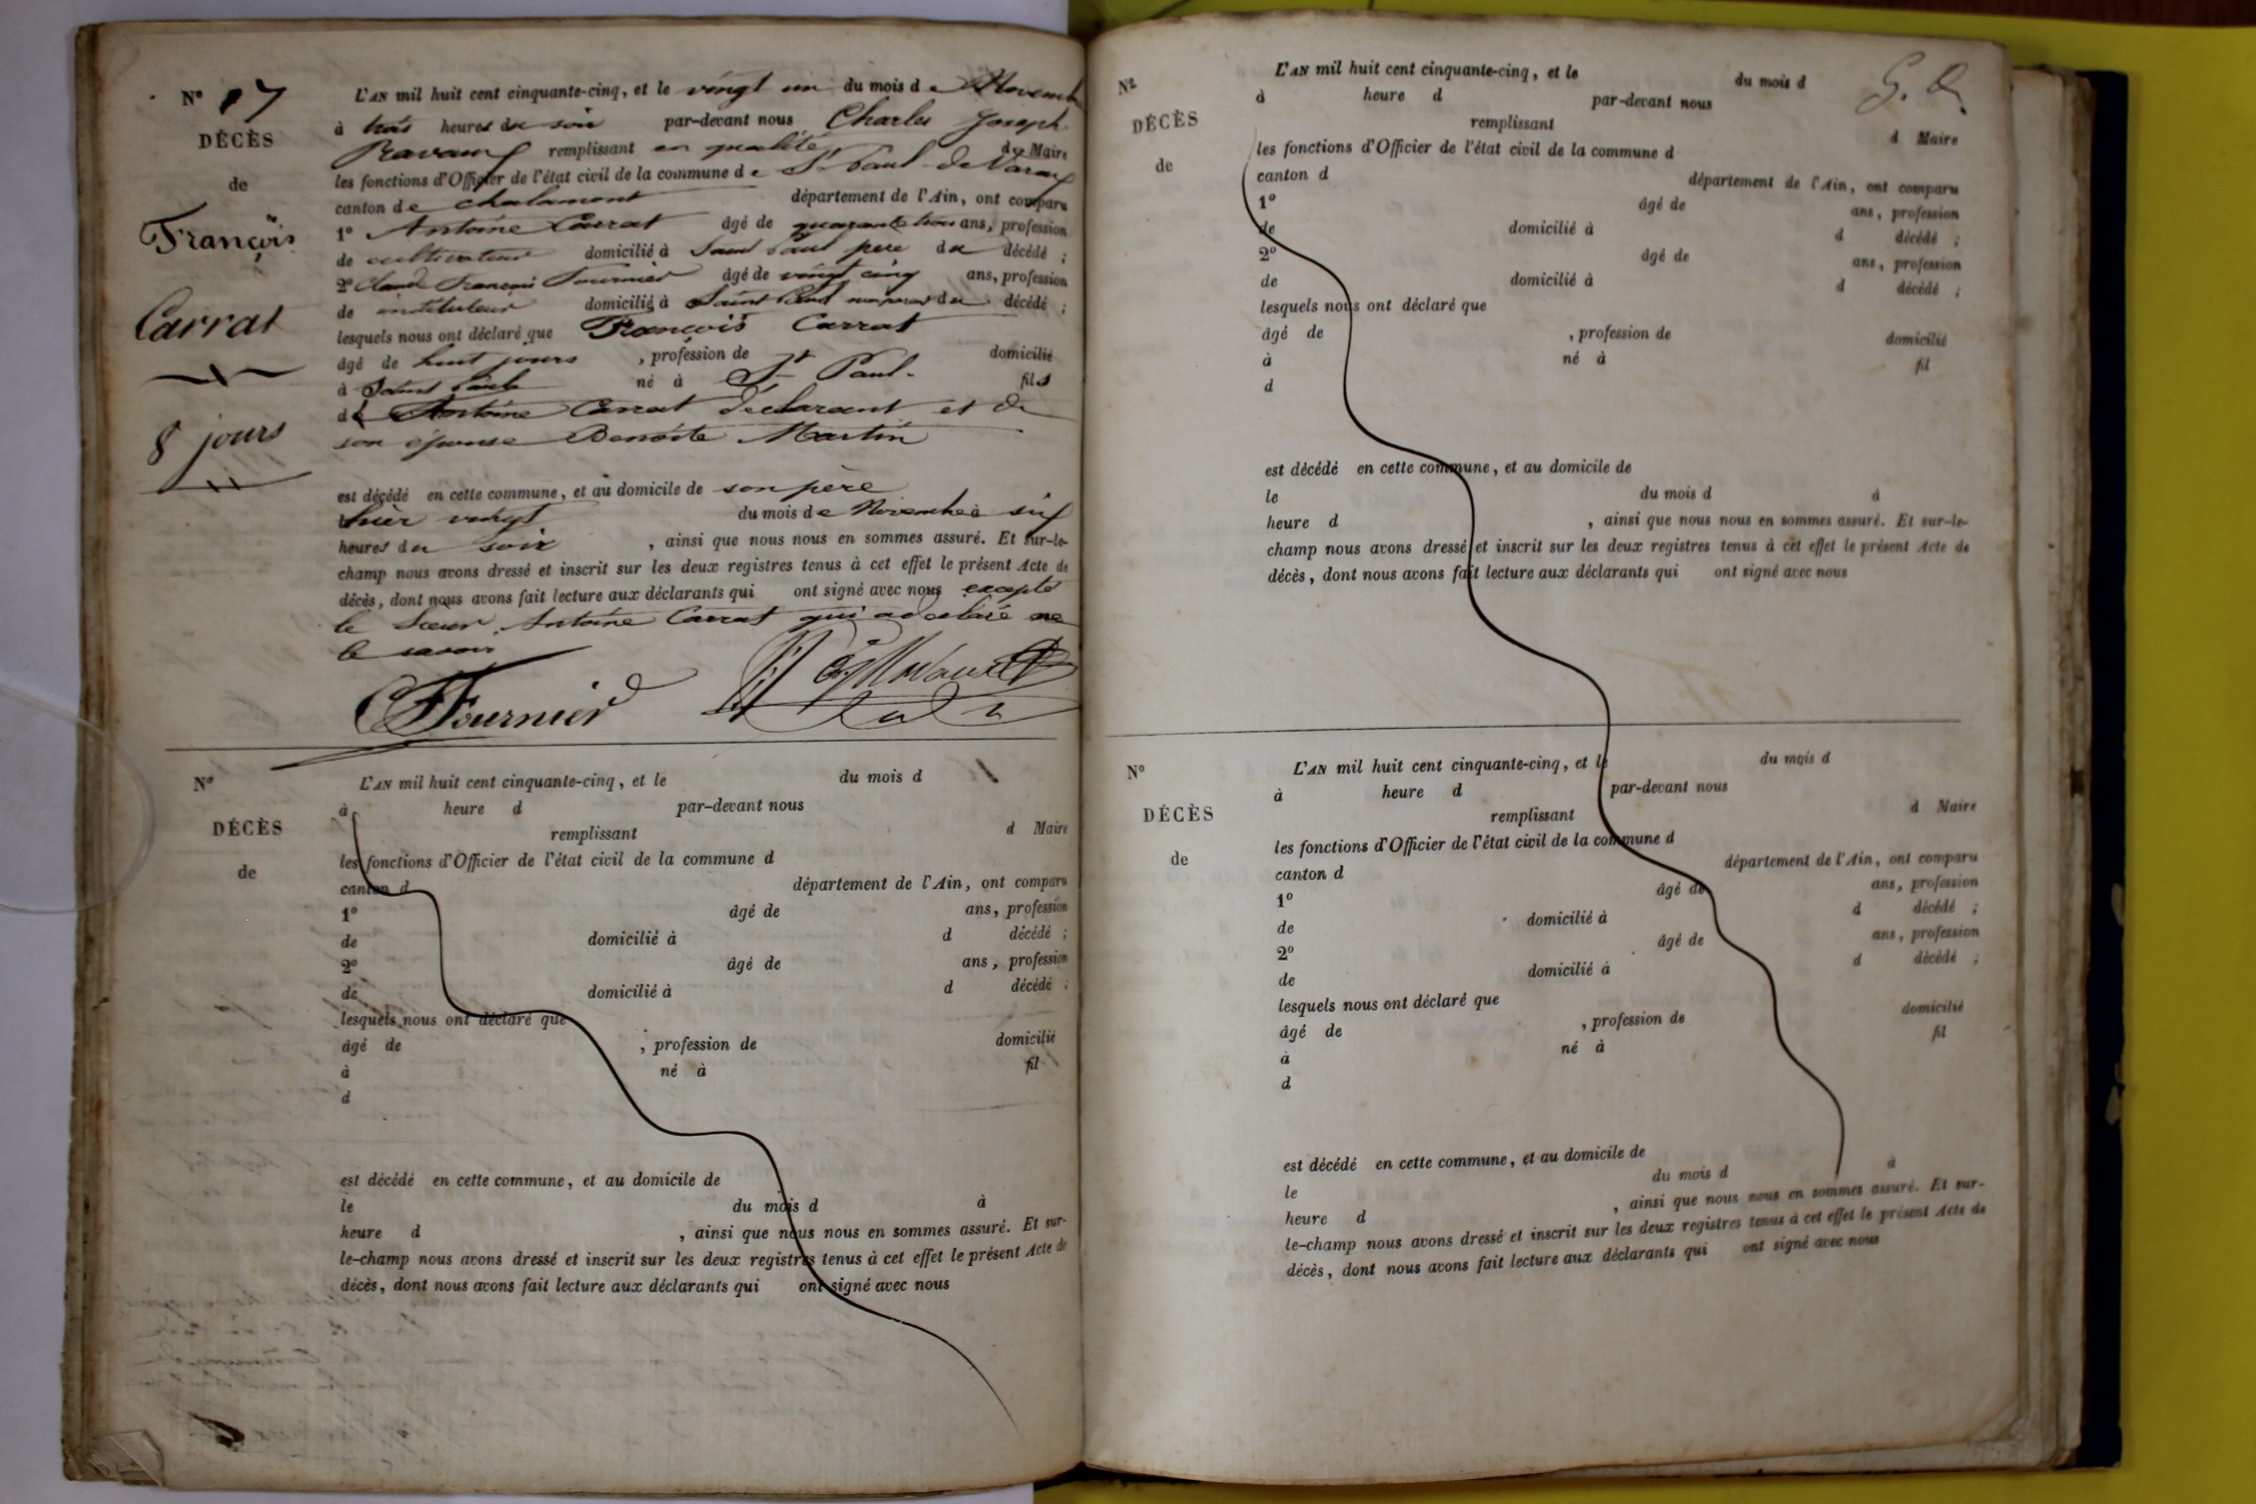 N° 17
DÉCÈS
de
François
Carrat
8 jours
L'AN mil huit cent cinquante-cinq, et le vingt un du mois de Novemb
à trois heures du soir par-devant nous Charles Joseph
remplissant en qualité du Maire
les fonctions d'Officier de l'état civil de la commune de St Paul de Varax
canton de chalamont département de l'Ain, ont comparu
1° Antoine Carrat âgé de quarante trois ans, profession
de cultivateur domicilié à Saint Paul père du décédé ;
2° Claude François Fournier âgé de vingt cinq ans, profession
de instituteur domicilié à Saint Paul du décédé ;
lesquels nous ont déclaré que François Carrat
âgé de huit jours , profession de domicilié
à Saint Paul né à St Paul. fils
d' Antoine Carrat déclarant et de
son épouse Benoite Martin
est décédé en cette commune, et au domicile de son père
hier vingt du mois de Novembre à six
heures du soir , ainsi que nous nous en sommes assuré. Et sur-le-
champ nous avons dressé et inscrit sur les deux registres tenus à cet effet le présent Acte de
décès, dont nous avons fait lecture aux déclarants qui ont signé avec nous excepté
le Sieur Antoine Carrat qui a déclaré ne
le savoir
CFFournier
N°
DÉCÈS
de
L'AN mil huit cent cinquante-cinq, et le du mois d
à heure d par-devant nous
remplissant d Maire
les fonctions d'Officier de l'état civil de la commune d
canton d département de l'Ain, ont comparu
1° âgé de ans, profession
de domicilié à d décédé ;
2° âgé de ans, profession
de domicilié à d décédé ;
lesquels nous ont déclaré que
âgé de , profession de domicilié
à né à fil
d
est décédé en cette commune, et au domicile de
le du mois d à
heure d , ainsi que nous nous en sommes assuré. Et sur-
le-champ nous avons dressé et inscrit sur les deux registres tenus à cet effet le présent Acte de
décès, dont nous avons fait lecture aux déclarants qui ont signé avec nous
N°
DÉCÈS
de
L'AN mil huit cent cinquante-cinq, et le du mois d
à heure d par-devant nous
remplissant d Maire
les fonctions d'Officier de l'état civil de la commune d
canton d département de l'Ain, ont comparu
1° âgé de ans, profession
de domicilié à d décédé ;
2° âgé de ans, profession
de domicilié à d décédé ;
lesquels nous ont déclaré que
âgé de , profession de domicilié
à né à fil
d
est décédé en cette commune, et au domicile de
le du mois d à
heure d , ainsi que nous nous en sommes assuré. Et sur-le-
champ nous avons dressé et inscrit sur les deux registres tenus à cet effet le présent Acte de
décès, dont nous avons fait lecture aux déclarants qui ont signé avec nous
N°
DÉCÈS
de
L'AN mil huit cent cinquante-cinq, et le du mois d
à heure d par-devant nous
remplissant d Maire
les fonctions d'Officier de l'état civil de la commune d
canton d département de l'Ain, ont comparu
1° âgé de ans, profession
de domicilié à d décédé ;
2° âgé de ans, profession
de domicilié à d décédé ;
lesquels nous ont déclaré que
âgé de , profession de domicilié
à né à fil
d
est décédé en cette commune, et au domicile de
le du mois d à
heure d , ainsi que nous nous en sommes assuré. Et sur-
le-champ nous avons dressé et inscrit sur les deux registres tenus à cet effet le présent Acte de
décès, dont nous avons fait lecture aux déclarants qui ont signé avec nous